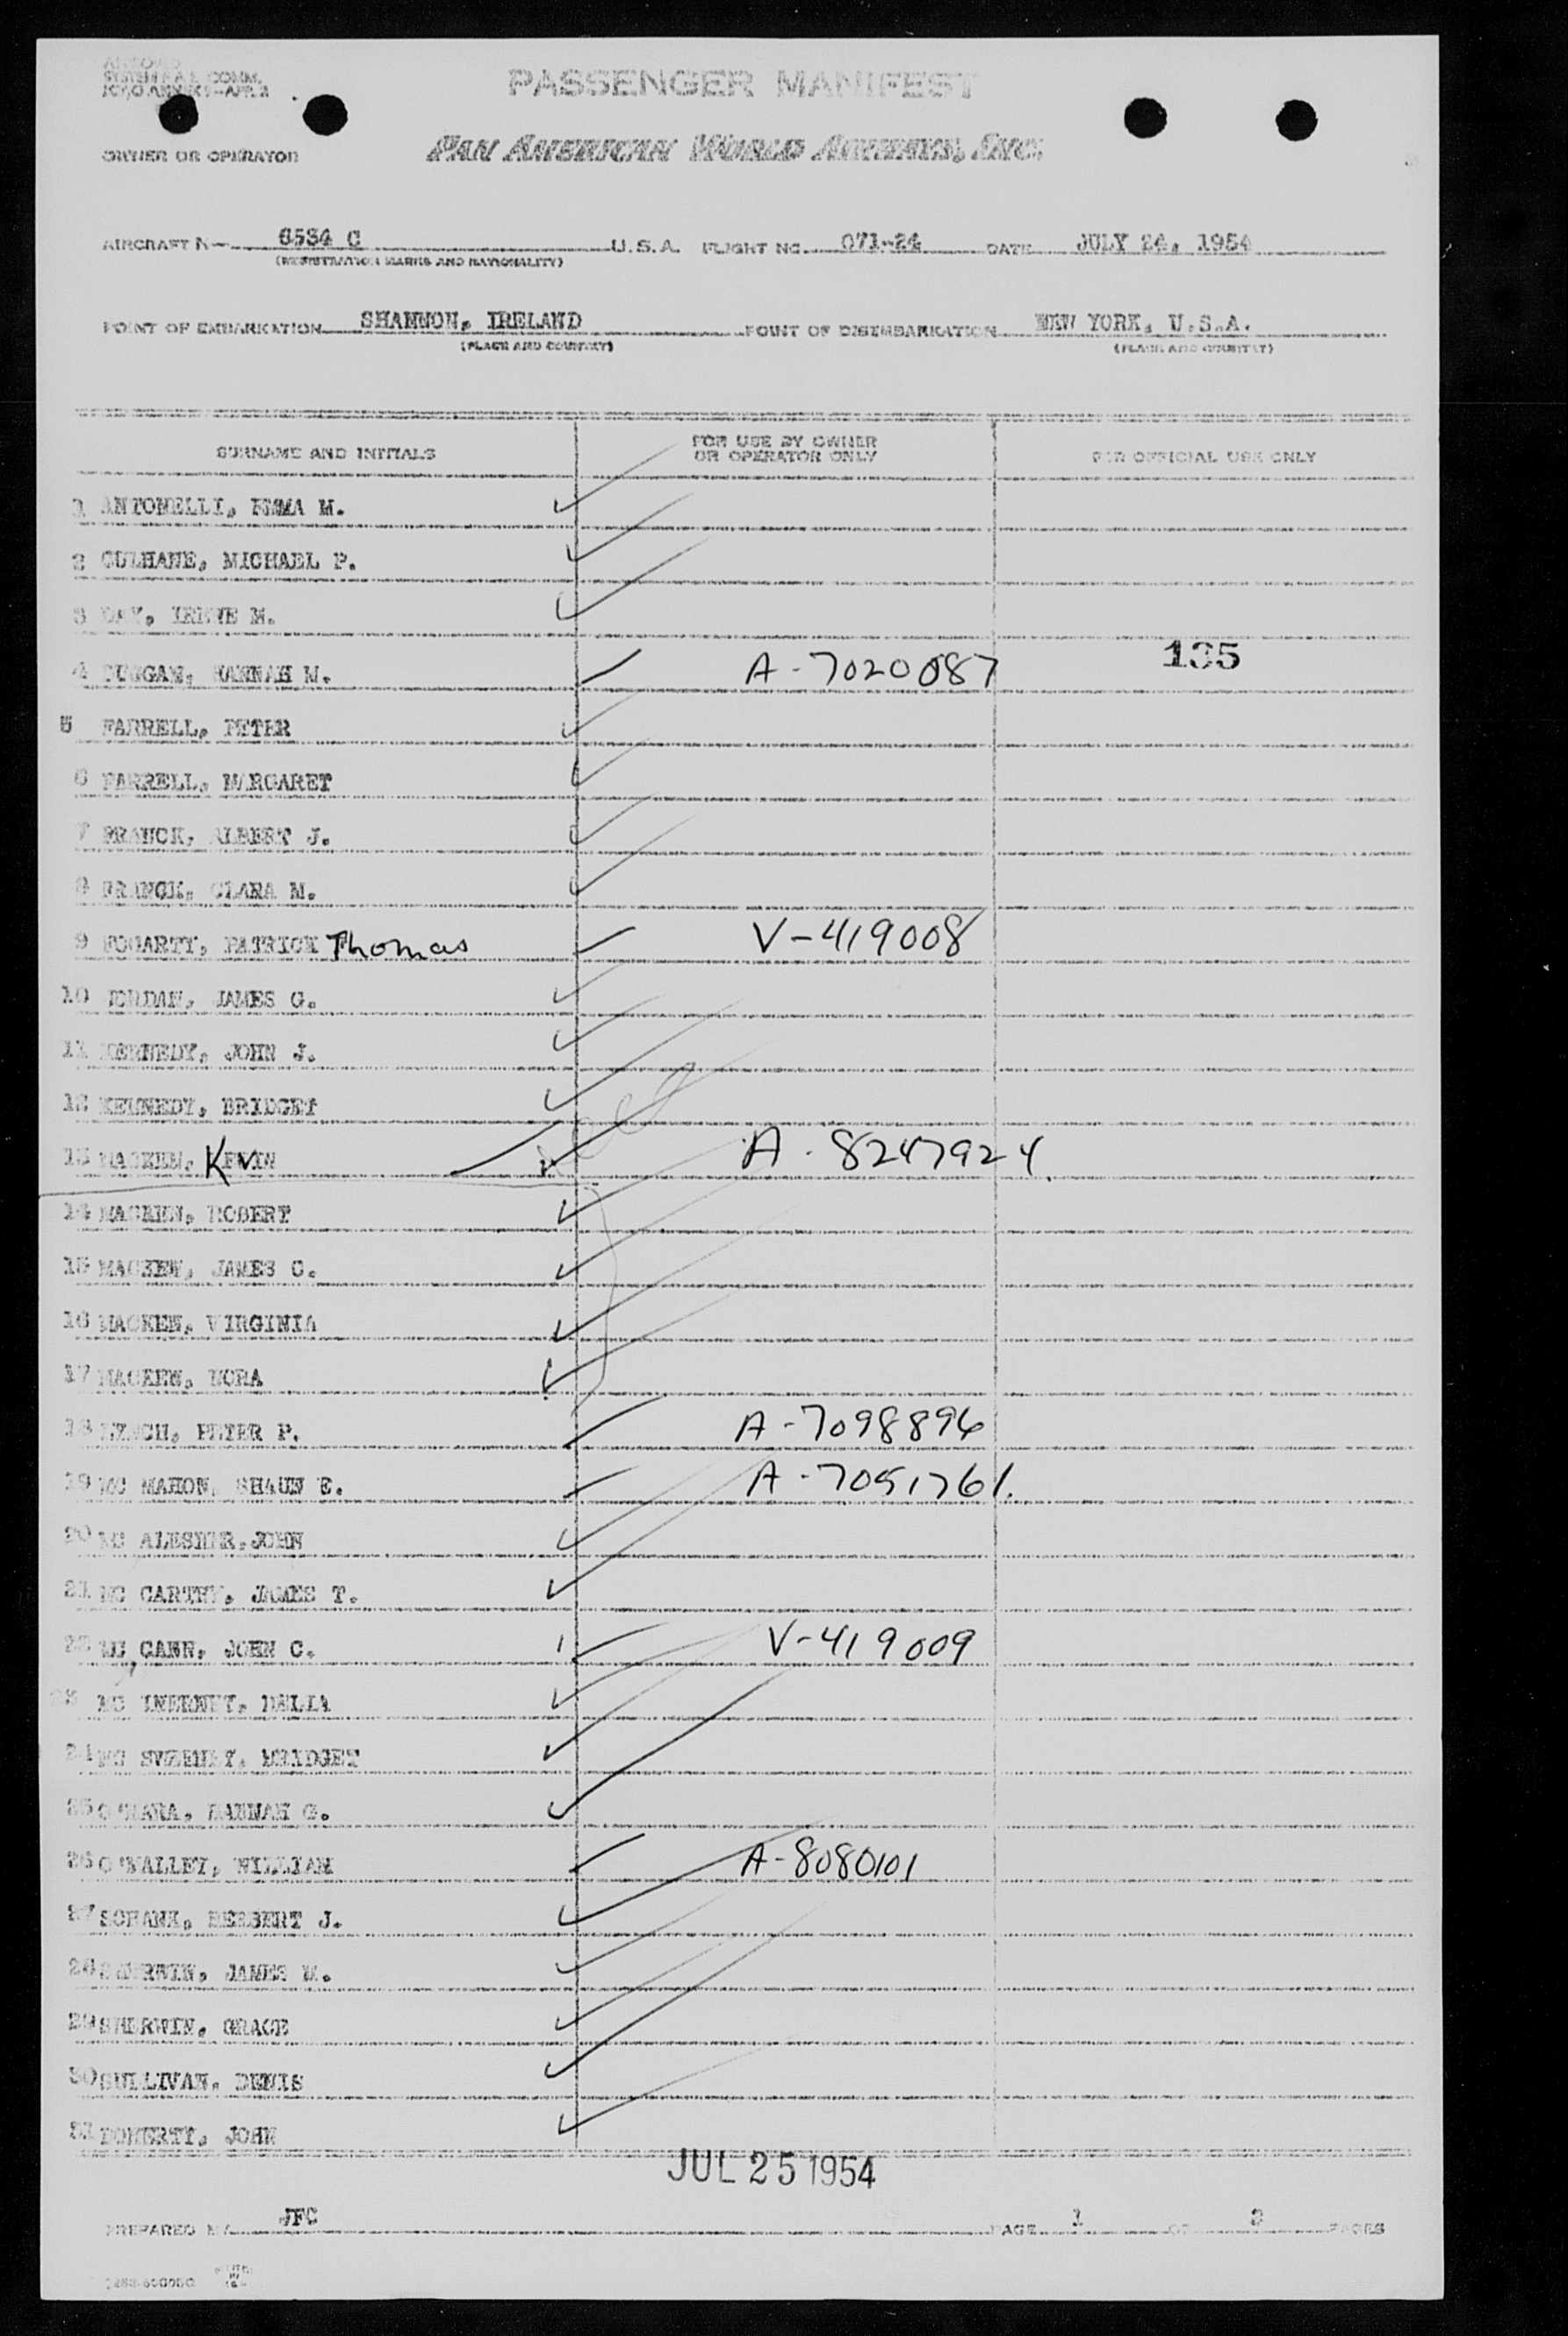 SYSTEM F.A.L. COMM.
PASSENGER MANIFEST
OWNER OR OPERATOR PAN AMERICAN WORLD AIRWAYS, INC.
AIRCRAFT N— 6534 C U.S.A. FLIGHT NO. 071-24 DATE JULY 24, 1954
(REGISTRATION MARKS AND NATIONALITY)
POINT OF EMBARKATION SHANNON, IRELAND POINT OF DISEMBARKATION NEW YORK, U.S.A.
(PLACE AND COUNTRY) (PLACE AND COUNTRY)
SURNAME AND INITIALS FOR USE BY OWNER OR OPERATOR ONLY FOR OFFICIAL USE ONLY
1 ANTONELLI, EMMA M.
2 CULHANE, MICHAEL P.
3 DAY, IRENE M.
4 DUGGAN, HANNAH M. A-7020087 135
5 FARRELL, PETER
6 FARRELL, MARGARET
7 FRANCK, ALBERT J.
8 FRANCK, CLARA M.
9 FOGARTY, PATRICK Thomas V-419008
10 JORDAN, JAMES G.
11 KENNEDY, JOHN J.
12 KENNEDY, BRIDGET
13 MACKEN, KEVIN A-8247924
14 MACKEN, ROBERT
15 MACKEN, JAMES C.
16 MACKEN, VIRGINIA
17 MACKEN, NORA
18 LYNCH, PETER P. A-7098896
19 MC MAHON, SHAUN E. A-7051761.
20 MC ALESHER, JOHN
21 MC CARTHY, JAMES T.
22 MC CANN, JOHN C. V-419009
23 MC INERNEY, DELIA
24 MC SWEENEY, BRIDGET
25 O'MARA, HANNAH G.
26 O'MALLEY, WILLIAM A-8080101
27 SCHANK, HERBERT J.
28 SHERWIN, JAMES M.
29 SHERWIN, GRACE
30 SULLIVAN, DENIS
31 DOHERTY, JOHN
JUL 25 1954
PREPARED BY JFC PAGE 1 OF 2 PAGES